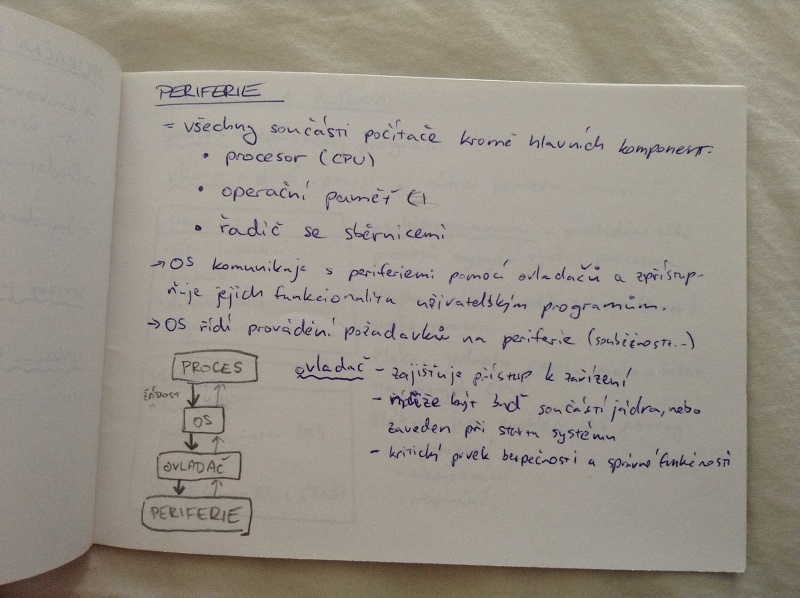 PERIFERIE
= všechny součásti počítače kromě hlavních komponent:
• procesor (CPU)
• operační paměť
• řadič se sběrnicemi
→ OS komunikuje s periferiemi pomocí ovladačů a zpřístup-
ňuje jejich funkcionalitu uživatelským programům.
→ OS řídí provádění požadavků na periferie (souběžnost...)
PROCES
žádost
OS
OVLADAČ
PERIFERIE
ovladač - zajišťuje přístup k zařízení
- může být buď součástí jádra, nebo
zaveden při startu systému
- kritický prvek bezpečnosti a správné funkčnosti